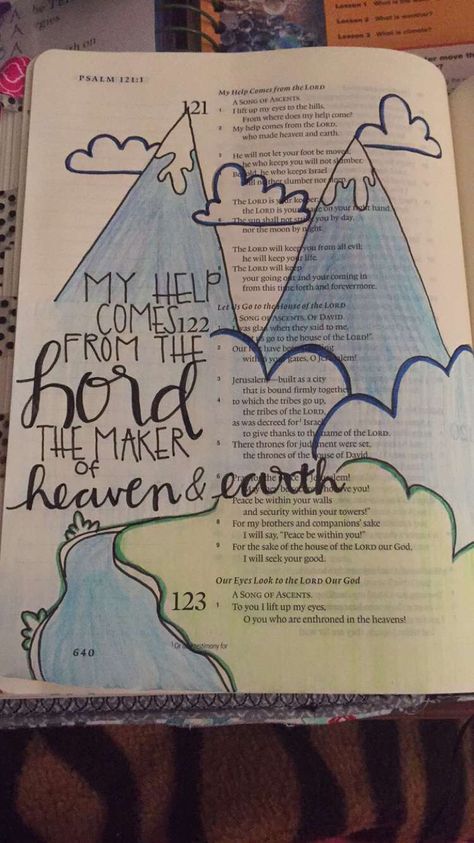 Lesson 1 What is weather?
Lesson 2
Lesson 3 What is climate?
PSALM 121:1
My Help Comes from the LORD
121 A SONG OF ASCENTS.
1 I lift up my eyes to the hills.
From where does my help come?
2 My help comes from the LORD,
who made heaven and earth.
3 He will not let your foot be moved;
he who keeps you will not slumber.
Behold, he who keeps Israel
will neither slumber nor
The LORD is your keeper;
the LORD is your on your right hand.
6 The sun shall not you by day,
nor the moon by night.
The LORD will keep you from all evil;
he will keep your life.
The LORD will keep
your going out and your coming in
from this time forth and forevermore.
Let Us Go to the House of the LORD
122 A SONG OF ASCENTS. OF DAVID.
was glad when they said to me,
us go to the house of the LORD!"
2 Our have been
within your gates, O Jerusalem!
3 Jerusalem—built as a city
that is bound firmly together,
4 to which the tribes go up,
the tribes of the LORD,
as was decreed for Israel,
to give thanks to the name of the LORD.
5 There thrones for judgment were set,
the thrones of the house of David.
6
Peace be within your walls
and security within your towers!"
8 For my brothers and companions' sake
I will say, "Peace be within you!"
9 For the sake of the house of the LORD our God,
I will seek your good.
Our Eyes Look to the LORD Our God
123 A SONG OF ASCENTS.
1 To you I lift up my eyes,
O you who are enthroned in the heavens!
MY HELP
COMES
FROM THE
Lord
THE MAKER
of
heaven & earth
640